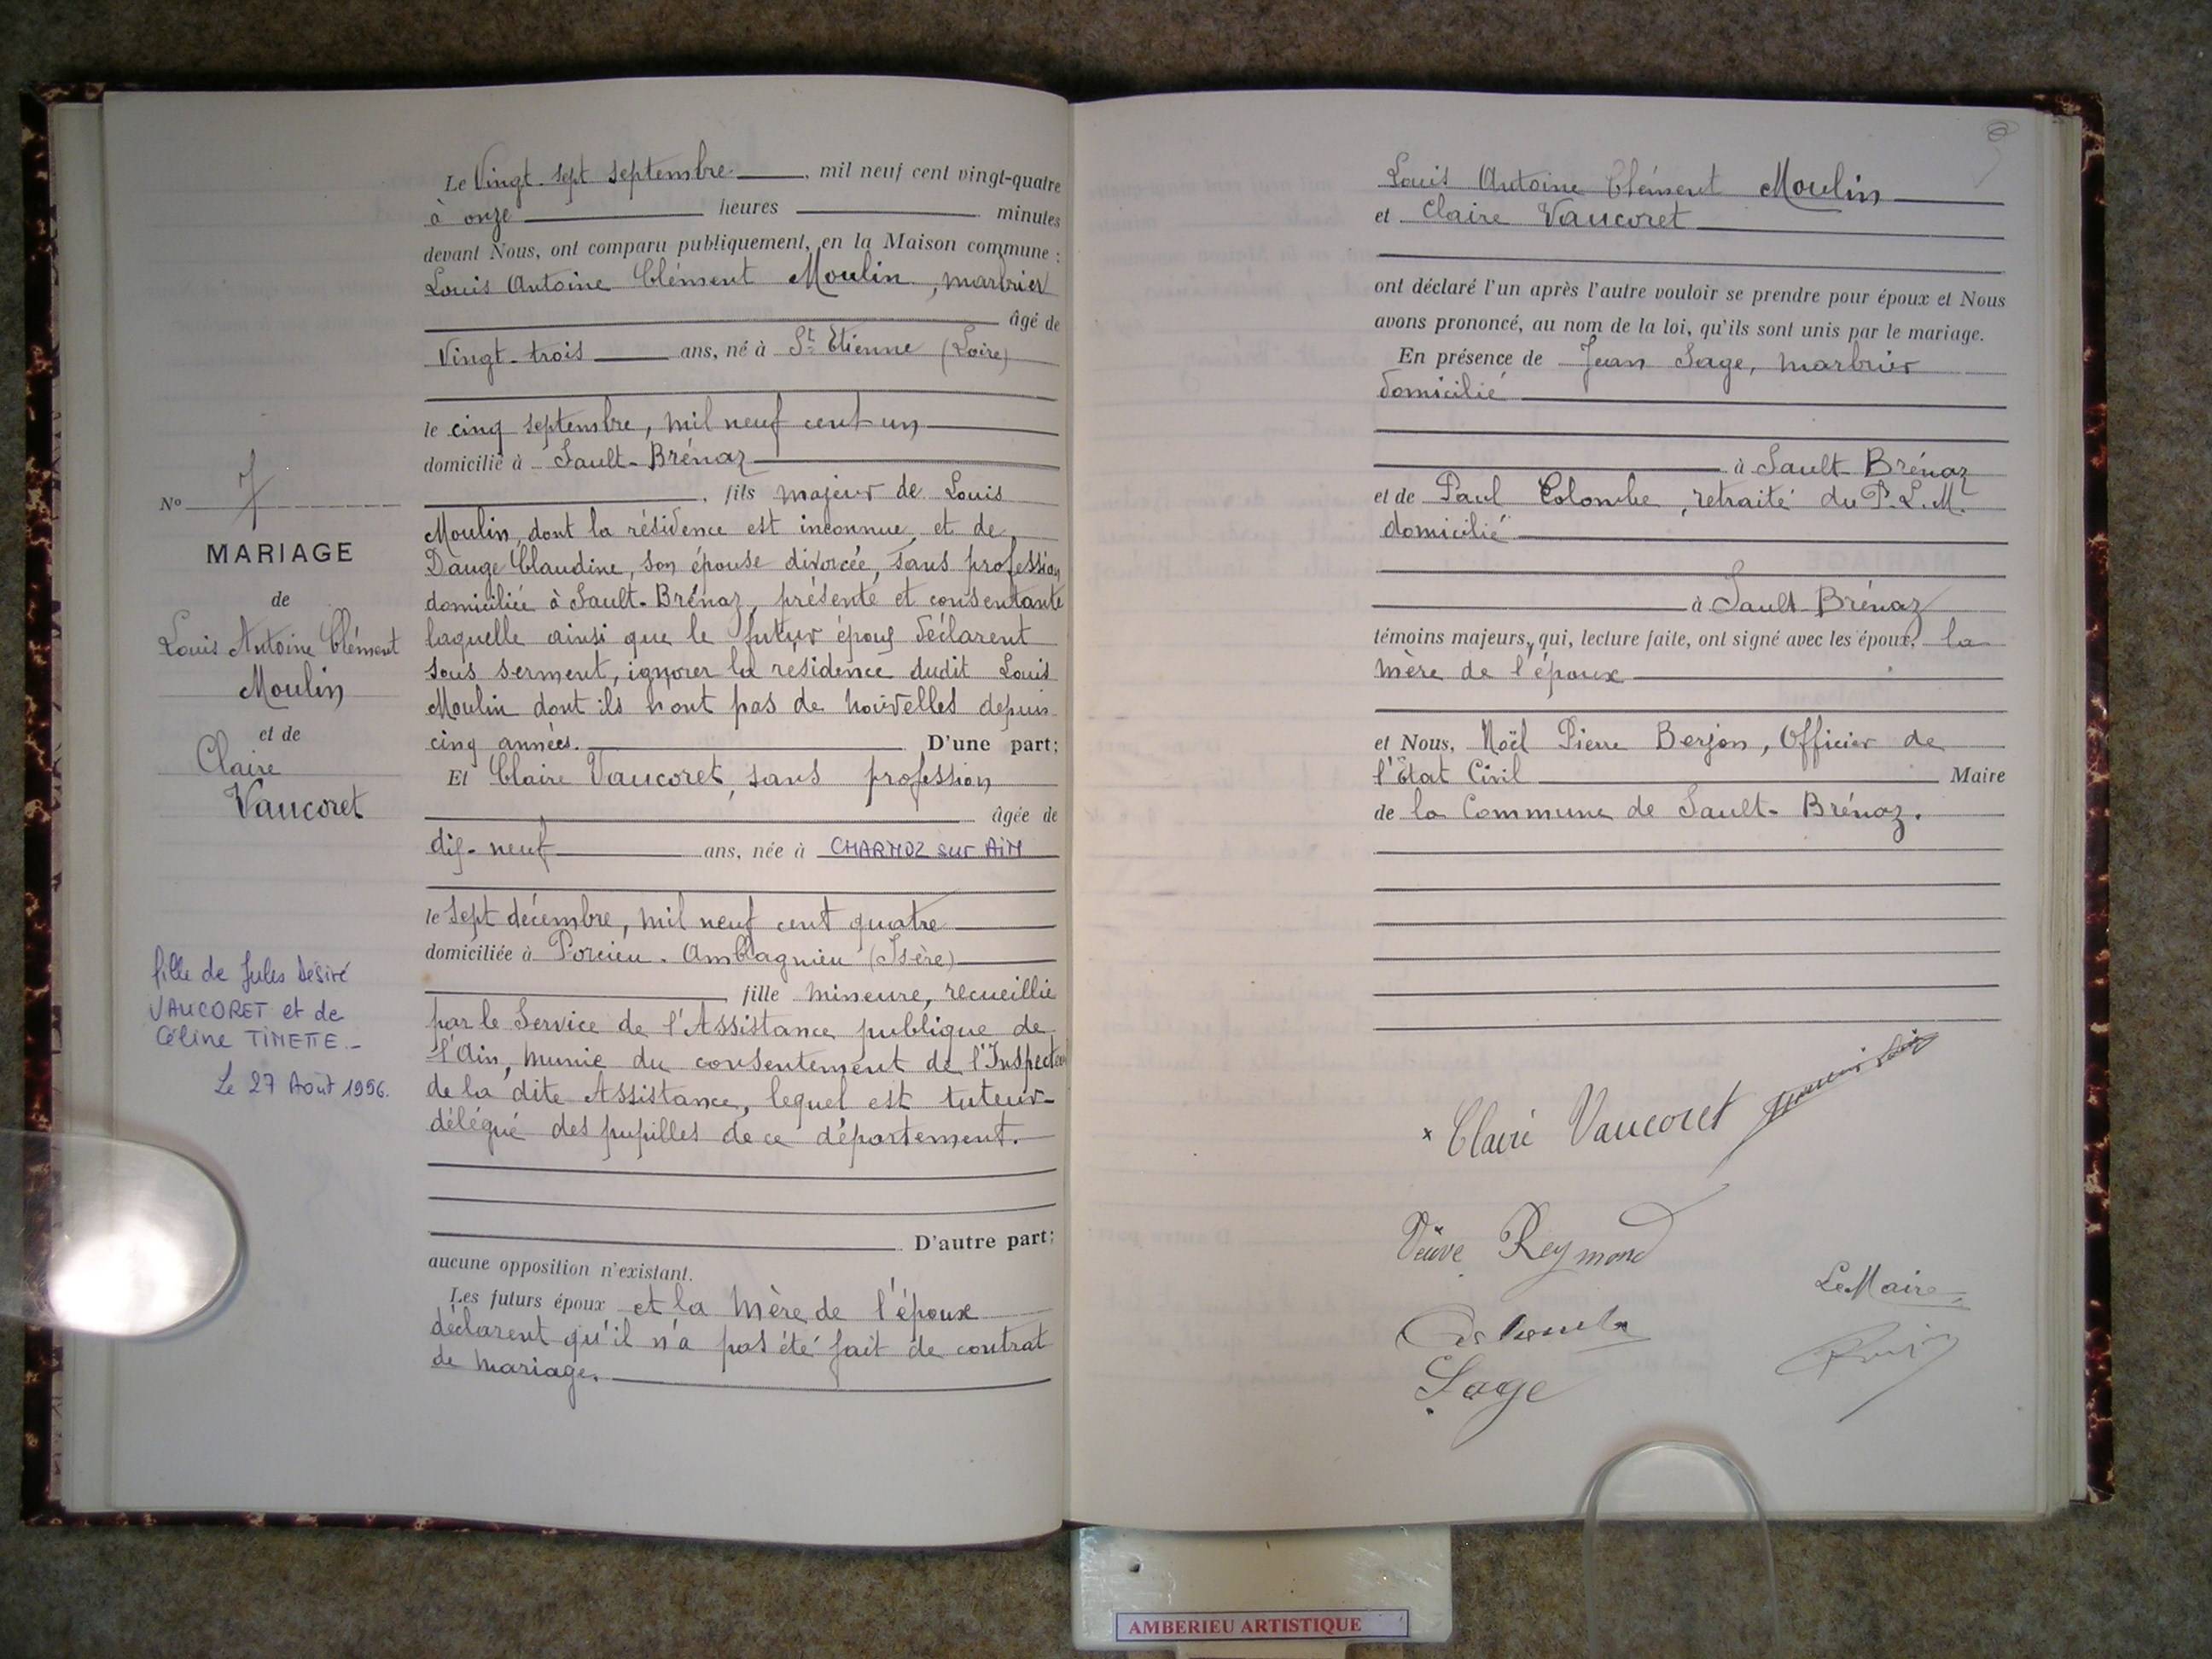 Le Vingt-sept septembre, mil neuf cent vingt-quatre
à onze heures minutes
devant Nous, ont comparu publiquement, en la Maison commune :
Louis Antoine Clément Moulin, marbrier
âgé de
Vingt-trois ans, né à St Etienne (Loire)
le cinq septembre, mil neuf cent un
domicilié à Sault-Brénaz
, fils majeur de Louis
Moulin, dont la résidence est inconnue, et de
Dauge Claudine, son épouse divorcée, sans profession
domiciliée à Sault-Brénaz, présente et consentante
laquelle ainsi que le futur époux déclarent
sous serment, ignorer la residence dudit Louis
Moulin dont ils n'ont pas de nouvelles depuis
cinq années. D'une part;
Et Claire Vaucoret, sans profession
âgée de
dix-neuf ans, née à CHARNOZ sur AIN
le sept décembre, mil neuf cent quatre
domiciliée à Porcieu-Amblagnieu (Isère)
fille mineure, recueillie
par le Service de l'Assistance publique de
l'Ain, munie du consentement de l'Inspecteur
de la dite Assistance, lequel est tuteur-
délégué des pupilles de ce département.
D'autre part;
aucune opposition n'existant.
Les futurs époux et la mère de l'époux
déclarent qu'il n'a pas été fait de contrat
de mariage.
No 7
MARIAGE
de
Louis Antoine Clément
Moulin
et de
Claire
Vaucoret
fille de Jules Désiré
VAUCORET et de
Céline TIMETTE.-
Le 27 Août 1996.
Louis Antoine Clément Moulin
et Claire Vaucoret
ont déclaré l'un après l'autre vouloir se prendre pour époux et Nous
avons prononcé, au nom de la loi, qu'ils sont unis par le mariage.
En présence de Jean Sage, marbrier
domicilié
à Sault-Brénaz
et de Paul Colombe, retraité du P.L.M.
domicilié
à Sault-Brénaz
témoins majeurs, qui, lecture faite, ont signé avec les époux, la
mère de l'époux
et Nous, Noël Pierre Berjon, Officier de
l'Etat Civil Maire
de la Commune de Sault-Brénaz.
x Claire Vaucoret
Veuve Reymond
Le Maire
Colombe
Sage
AMBERIEU ARTISTIQUE